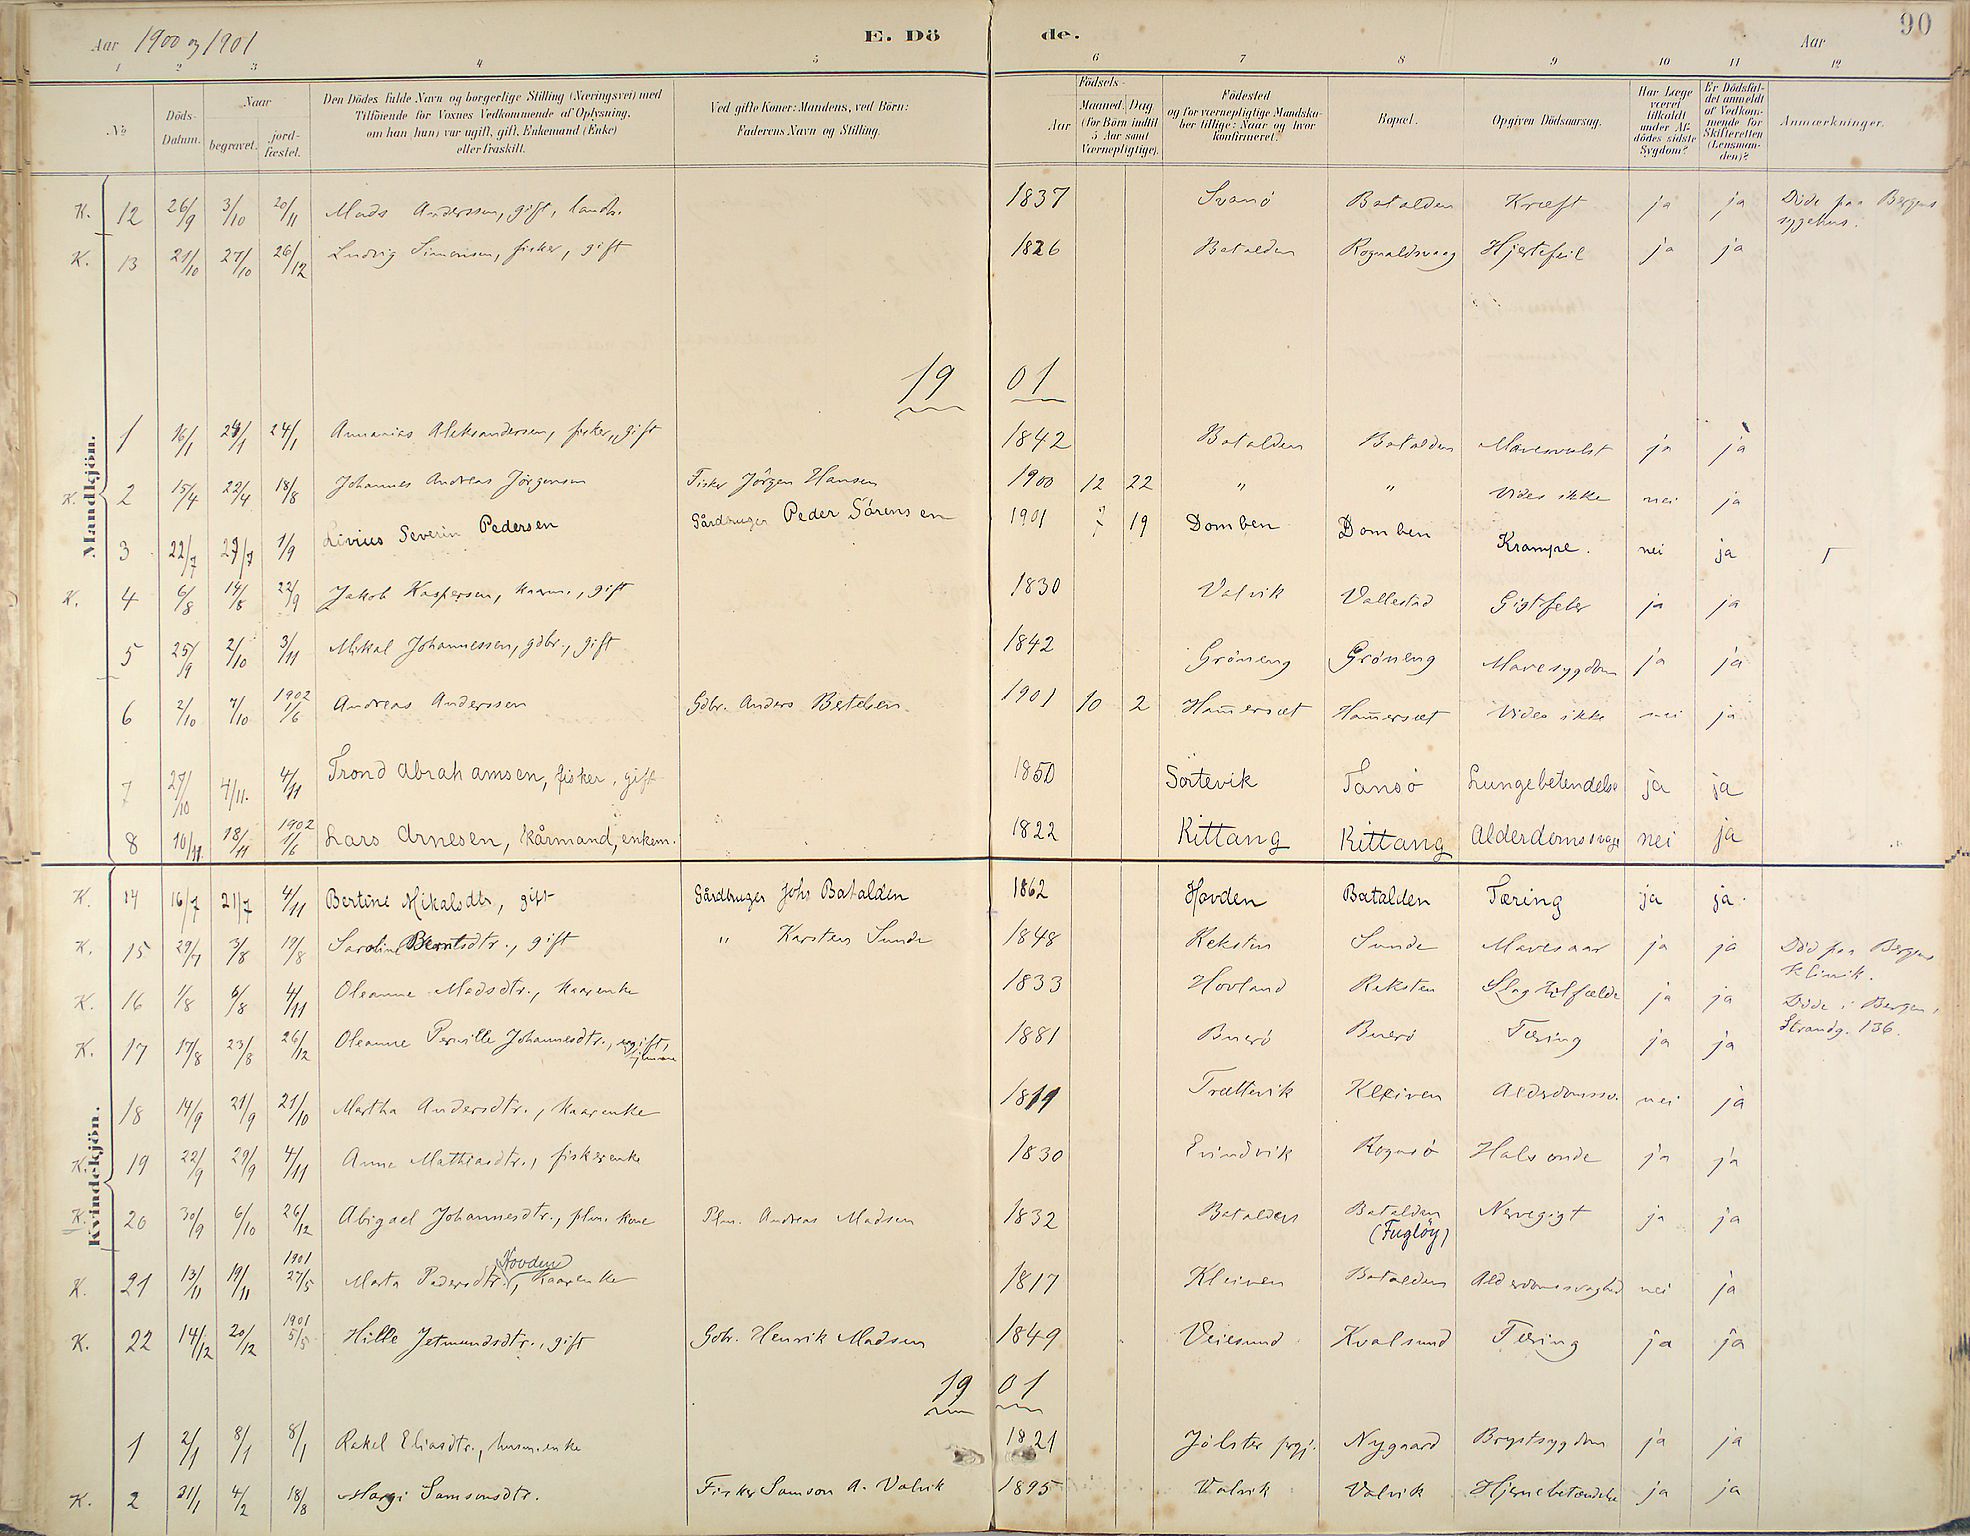 Aar 1900 og 1901 E. Dö de. Aar 90
1 2 3 4 5 6 7 8 9 10 11 12
№
Döds-Datum.
Naar
begravet.
jord-fæstet.
Den Dödes fulde Navn og borgerlige Stilling (Næringsvei) med
Tilföiende for Voxnes Vedkommende af Oplysning,
om han (hun) var ugift, gift, Enkemand (Enke)
eller fraskilt.
Ved gifte Koner: Mandens, ved Börn:
Faderens Navn og Stilling.
Födsels-
Aar Maaned. Dag
(for Börn indtil
5 Aar samt
Værnepligtige).
Födested
og for værnepligtige Mandska-
ber tillige: Naar og hvor
konfirmeret.
Bopæl.
Opgiven Dödsaarsag.
Har Læge
været
tilkaldt
under Af-
dödes sidste
Sygdom?
Er Dödsfal-
det anmeldt
af Vedkom-
mende for
Skifteretten
(Lensman-
den)?
Anmærkninger.
Mandkjön.
K. 12 26/9 3/10 20/11 Mads Anderssen, gift, landh. 1837 Svanö Batalden Kræft ja ja Döde paa Bergens sygehus.
K. 13 21/10 27/10 26/12 Ludvig Simonsen, fisker, gift 1826 Batalden Rognaldsvaag Hjertefeil ja ja
19 01
1 16/1 24/1 24/1 Annanias Aleksandersen, fisker, gift 1842 Batalden Batalden Mavesvulst ja ja
K. 2 15/4 22/4 18/8 Johannes Andreas Jörgensen Fisker Jörgen Hansen 1900 12 22 " " Vides ikke nei ja
3 22/7 27/7 1/9 Livius Severin Pedersen Gårdbruger Peder Sörensen 1901 19 Domben Domben Krampe. nei ja
K. 4 6/8 14/8 22/9 Jakob Kaspersen, kaarm., gift 1830 Valvik Vallestad Gigtfeber ja ja
5 25/9 2/10 3/11 Mikal Johannessen, gdbr., gift 1842 Gröneng Gröneng Mavesygdom ja ja
6 2/10 7/10 1902 1/6 Andreas Anderssen Gdbr. Anders Bertelsen 1901 10 2 Ham̄ersæt Ham̄ersæt Vides ikke nei ja
7 27/10 4/11. 4/11 Trond Abrahamsen, fisker, gift 1850 Sörtevik Tansö Lungebetendelse ja ja
8 10/11 18/11 1902 1/6 Lars Arnesen, kårmand, enkem. 1822 Kittang Kittang Alderdomssvagh nei ja
Kvindekjön.
K. 14 16/7 21/7 4/11 Bertine Mikalsdtr, gift Gårdbruger Johs Batalden 1862 Hovden Batalden Tæring ja ja.
K. 15 29/7 3/8 19/8 Saroline Berntsdtr., gift " Karsten Sunde 1848 Reksten Sunde Mavesaar ja ja Död paa Bergens Klinik.
K. 16 1/8 6/8 4/11 Oleanne Madsdtr., kaarenke 1833 Hovland Reksten Slagtilfælde ja ja Döde i Bergen, Strandg. 136.
K. 17 17/8 23/8 26/12 Oleanne Pernille Johannesdtr., ugift, 1881 Buerö Buerö Tæring ja ja
18 14/9 21/9 21/10 Martha Andersdtr., kaarenke 1819 Trættevik Kleiven Alderdomssv. nei ja
K. 19 22/9 29/9 4/11 Anne Mathiasdtr., fiskerenke 1830 Evindvik Rognsö Halsonde ja ja
K. 20 30/9 6/10 26/12 Abigael Johannesdtr., plm. kone Plm. Andreas Madsen 1832 Batalden Batalden (Fuglöy) Nervegigt ja ja
K. 21 13/11 19/11 1901 27/5 Marta Pedersdtr. Hovdene, kaarenke 1817 Kleiven Batalden Alderdomssvaghed nei ja
K. 22 14/12 20/12 1901 5/5 Hille Jetmundsdtr., gift Gdbr. Henrik Madsen 1849 Veiesund Kvalsund Tæring ja ja
19 01
1 2/1 8/1 8/1 Rakel Eliasdtr., husm.enke 1821 Jölster prgj. Nygaard Brystsygdom ja ja
K. 2 31/1 4/2 18/8 Margi Samsonsdtr. Fisker Samson A. Valvik 1895 Valvik Valvik Hjernebetændelse ja ja